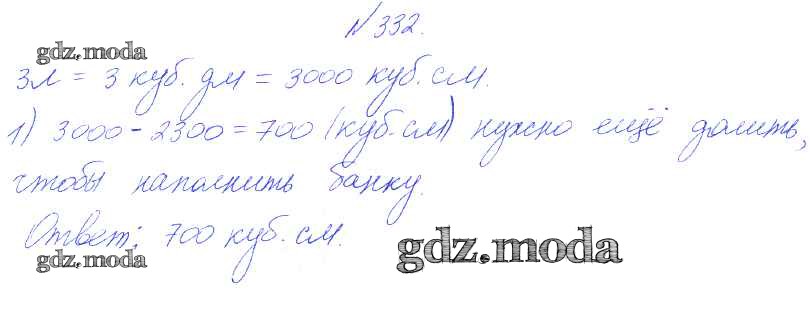 №332.
gdz.moda
3л = 3 куб. дм = 3000 куб. см.
1) 3000 - 2300 = 700 (куб. см) нужно ещё долить,
чтобы наполнить банку.
Ответ: 700 куб. см.
gdz.moda
gdz.moda